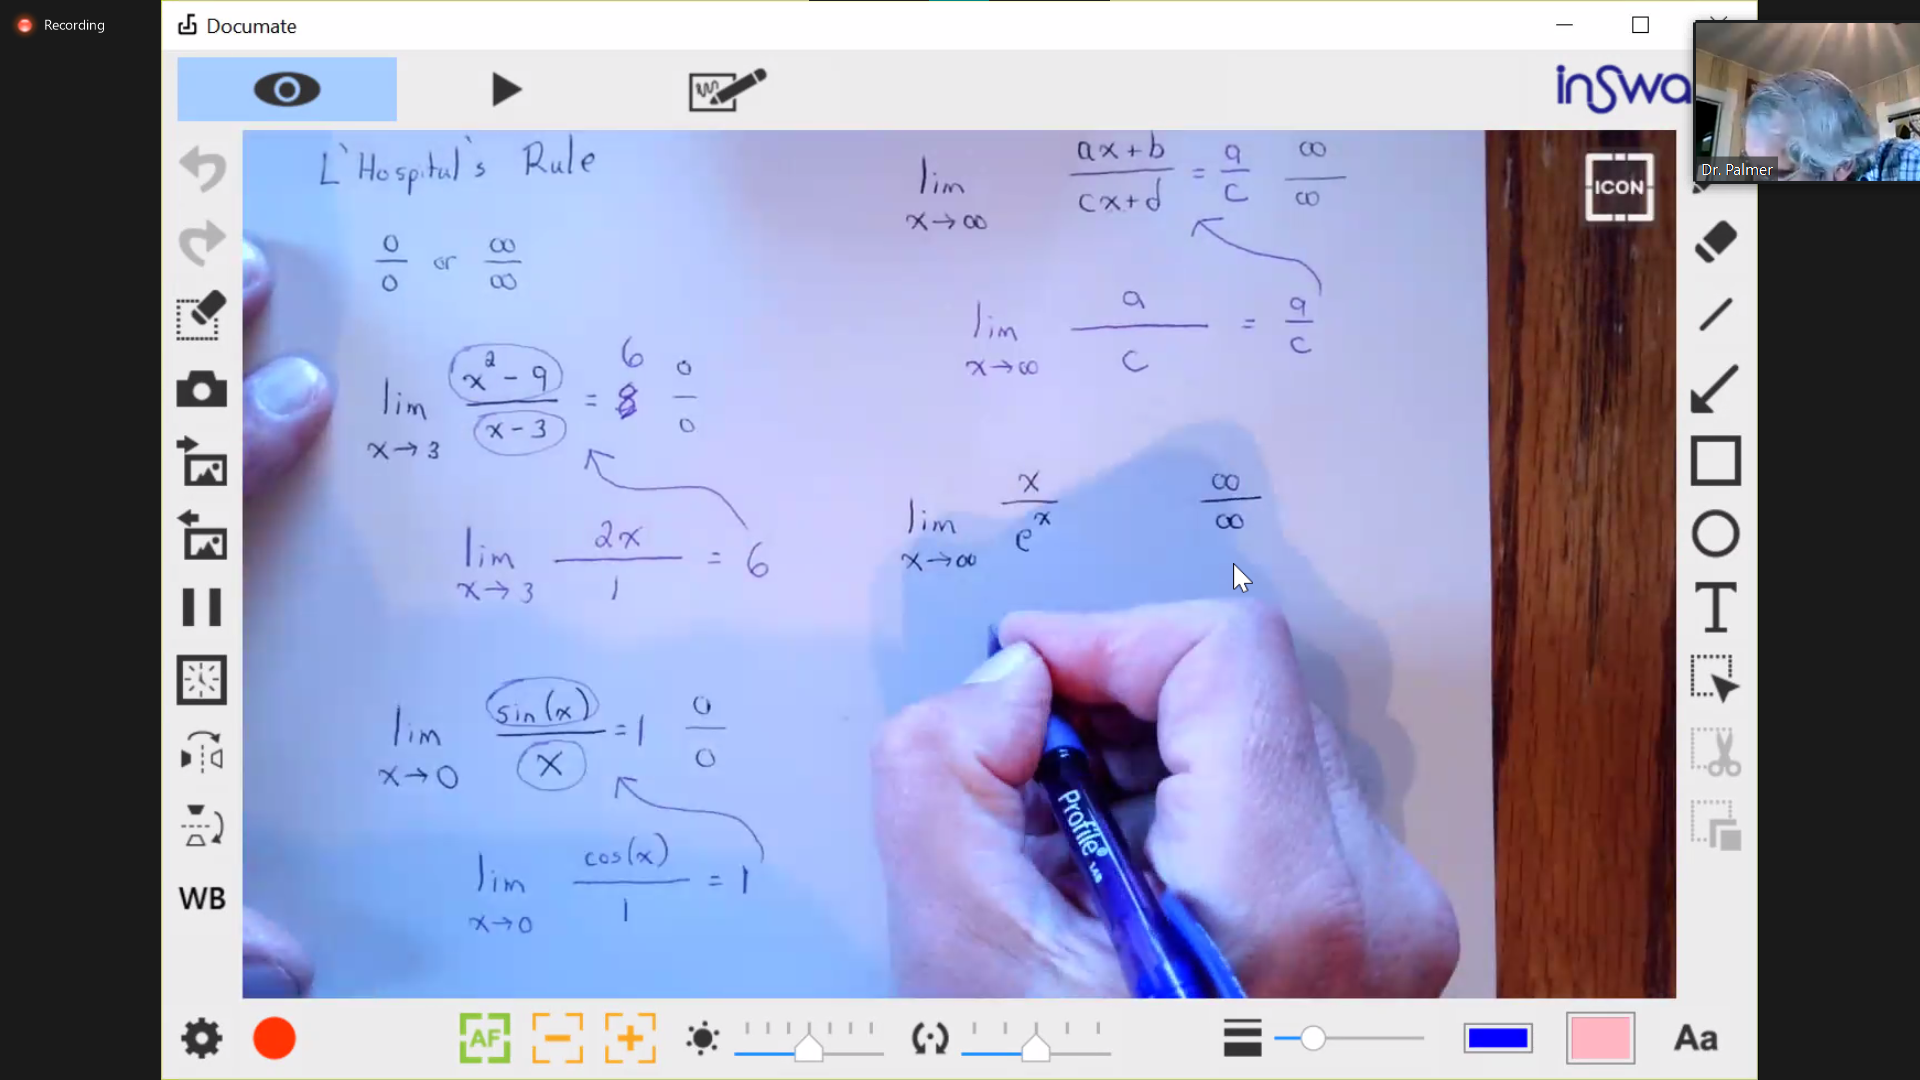 Recording
Documate
inSwa
Dr. Palmer
ICON
L'Hospital's Rule
0/0 or ∞/∞
lim x→3 x² - 9 / x - 3 = 6 0/0
lim x→3 2x / 1 = 6
lim x→0 sin(x) / x = 1 0/0
lim x→0 cos(x) / 1 = 1
lim x→∞ ax+b / cx+d = a/c ∞/∞
lim x→∞ a / c = a/c
lim x→∞ x / eˣ ∞/∞
Profile
LAB
WB
T
AF
Aa